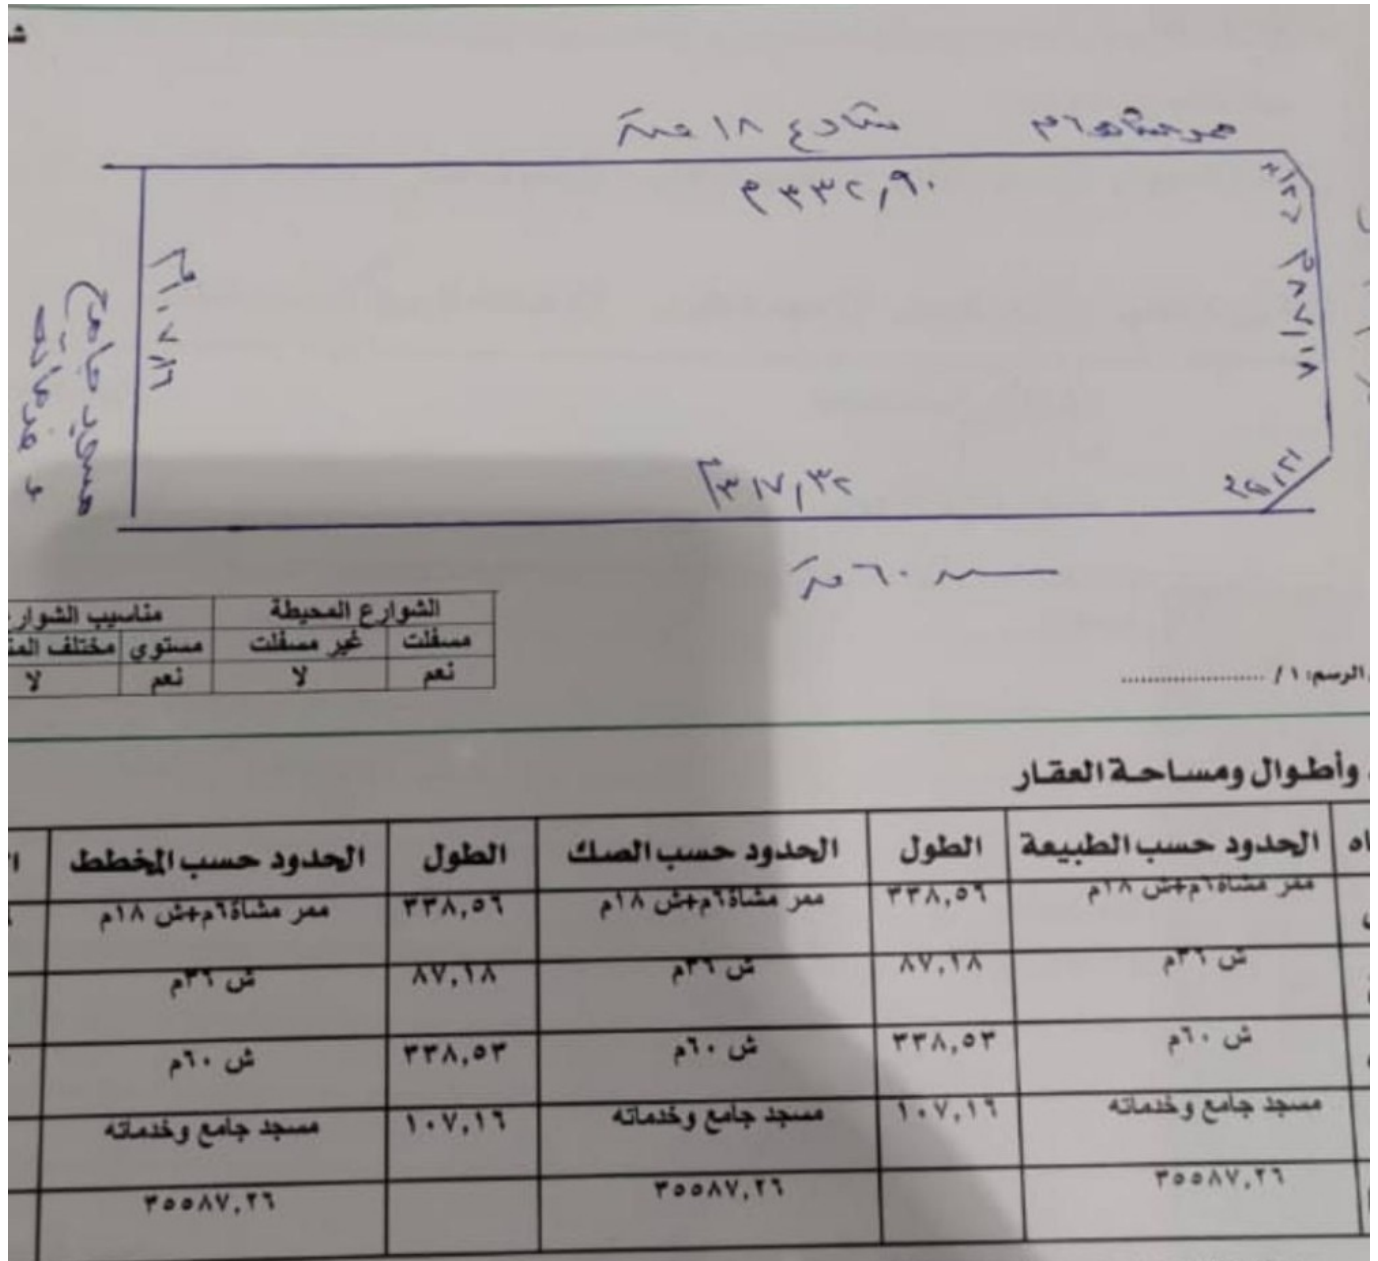 شارع ١٨ متر
٣٣٢,٩٠م
م٨٧,١٨
١٠٧,١٦م
مسجد جامع
و خدماته
٣١٧,٣٢م
ش ٦٠ متر
الشوارع المحيطة
مناسيب الشوار
مسفلت
غير مسفلت
مستوي
مختلف المن
نعم
لا
نعم
لا
الرسم: ١ / ......................
وأطوال ومساحة العقار
اه
الحدود حسب الطبيعة
الطول
الحدود حسب الصك
الطول
الحدود حسب المخطط
ممر مشاة٦م+ش ١٨م
٣٣٨,٥٦
ممر مشاة٦م+ش ١٨م
٣٣٨,٥٦
ممر مشاة٦م+ش ١٨م
ش ٣٦م
٨٧,١٨
ش ٣٦م
٨٧,١٨
ش ٣٦م
ش ٦٠م
٣٣٨,٥٣
ش ٦٠م
٣٣٨,٥٣
ش ٦٠م
مسجد جامع وخدماته
١٠٧,١٦
مسجد جامع وخدماته
١٠٧,١٦
مسجد جامع وخدماته
٣٥٥٨٧,٢٦
٣٥٥٨٧,٢٦
٣٥٥٨٧,٢٦